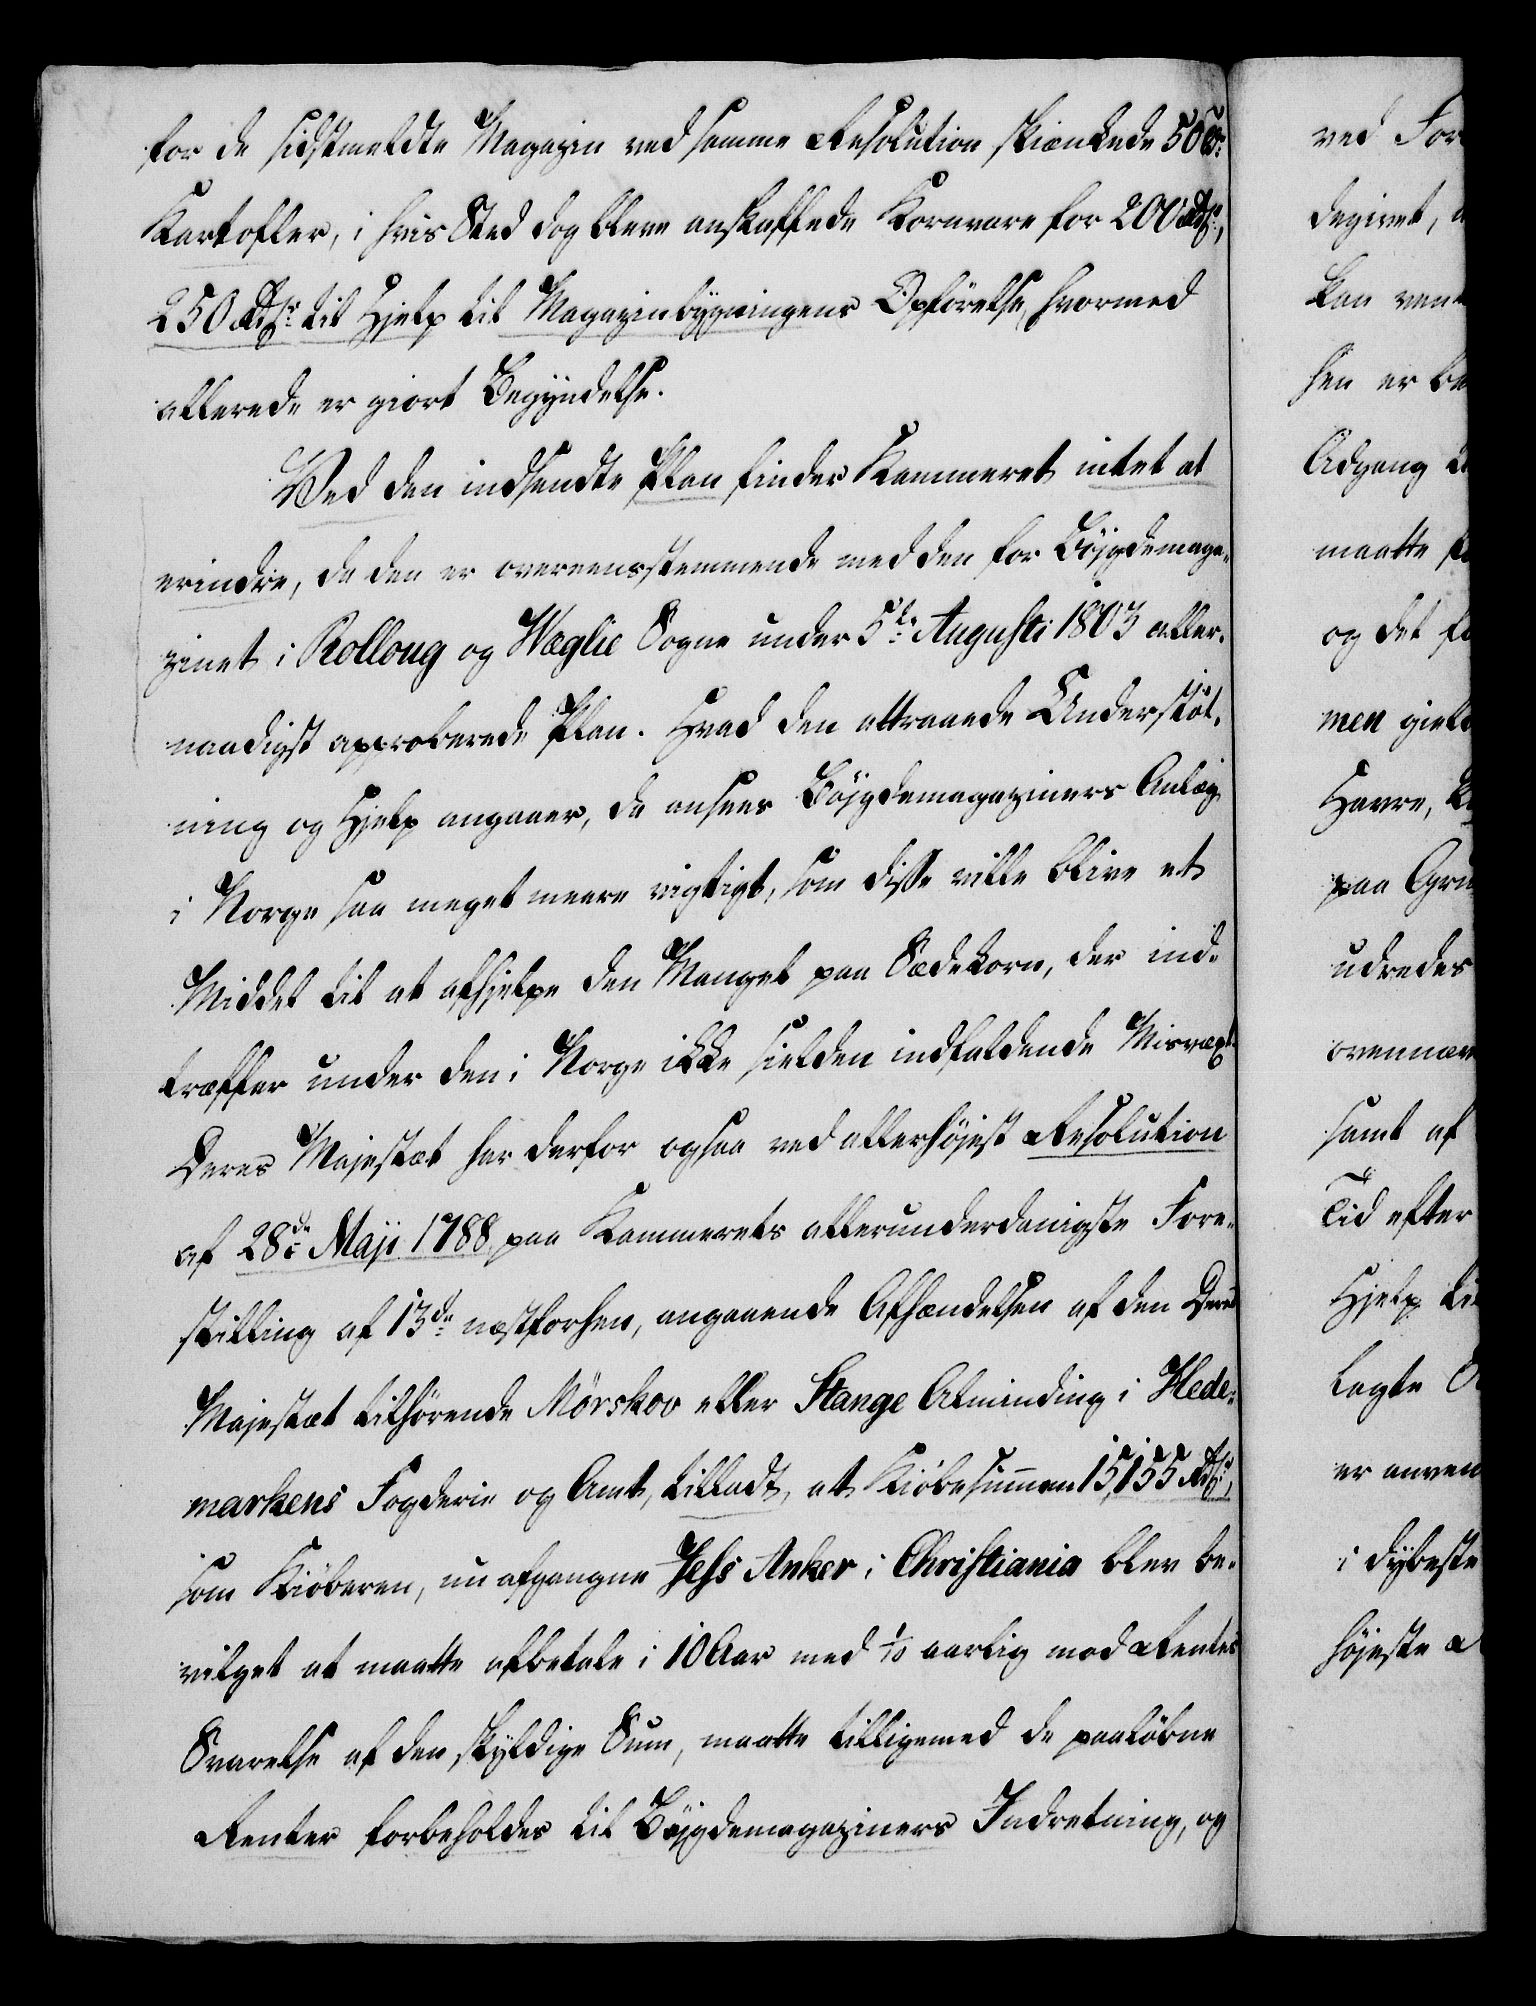 for de sidstmeldte Magazin ved samme Resolution skienkede 50 Tr:
Kartofler, i hvis Sted dog bleve anskaffede Kornvare for 200 Rdlr,
250 Rdlr til Hjelp til Magazinbygningens Opførelse, hvormed
allerede er giort Begyndelse.
Ved den indsendte Plan finder Kammeret intet at
erindre, da den er overeensstemmende med den for Bøjgdemaga-
zinet i Rolloug og Wæglie Sogne under 5te Augusti 1803 aller-
naadigst approberede Plan. Hvad den attraaede Understøt-
ning og Hjelp angaaer, da ansees Bøjgdemagaziners Anlæg
i Norge saa meget meere vigtigt, som disse ville blive et
Middel til at afhjelpe den Mangel paa Sædekorn, der ind-
træffer under den i Norge ikke sielden indfaldende Misvæxt.
Deres Majestæt har derfor ogsaa ved allerhøjest Resolution
af 28de Maji 1788 paa Kammerets allerunderdanigste Fore-
stilling af 13de næstforhen, angaaende Afhændelsen af den Deres
Majestæt tilhørende Mørskov eller Stange Alminding i Hede-
markens Fogderie og Amt, tilladt, at Kiøbesummen 15,155 Rdlr,
som Kiøberen, nu afgangne Jess Anker i Christiania blev be-
vilget at maatte afbetale i 10 Aar med 1/10 aarlig mod Rentes
Svarelse af den skyldige Sum, maatte tilligemed de paaløbne
Renter forbeholdes til Bøjgdemagaziners Indretning, og
ved For
degivet,
kan vent
hen er be
Adgang
maatte
og det
men gield
Havre,
paa Gru
udredes
ovennæv
samt af
Tid efter
Hjelp til
lagte
er anven
i dybeste
højeste